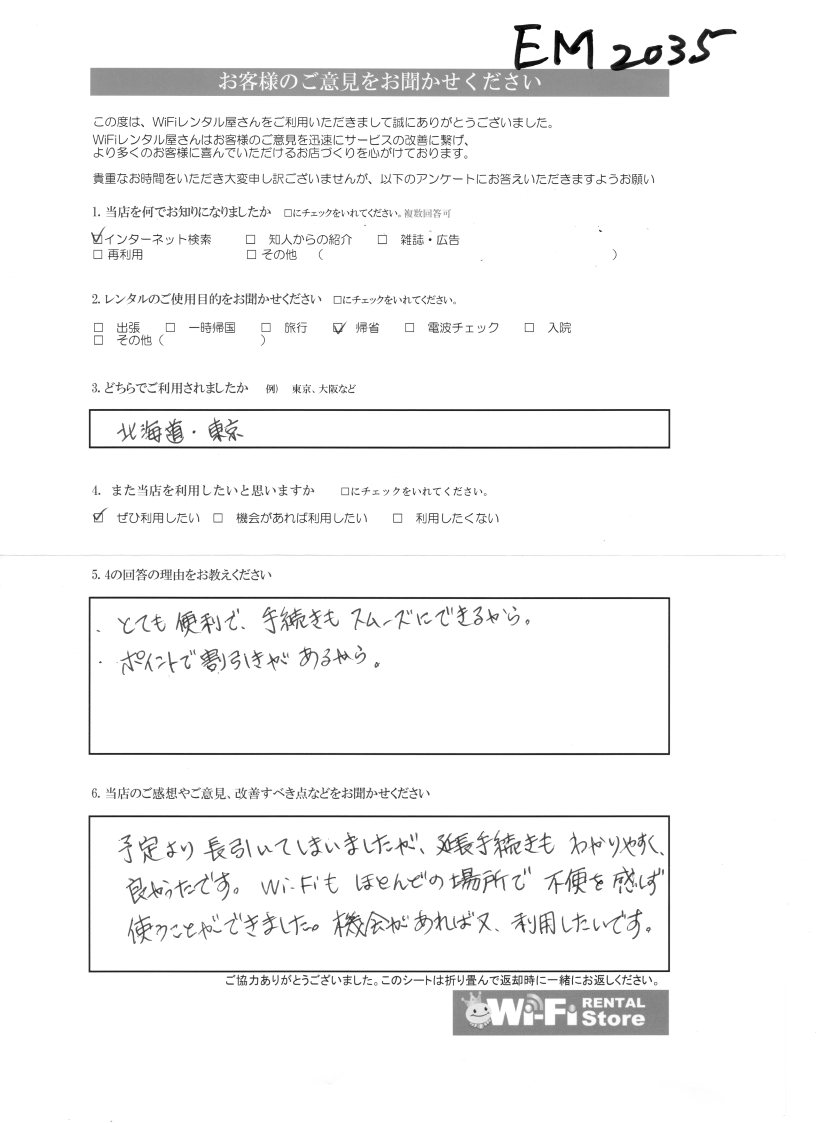 EM 2035
お客様のご意見をお聞かせください
この度は、WiFiレンタル屋さんをご利用いただきまして誠にありがとうございました。
WiFiレンタル屋さんはお客様のご意見を迅速にサービスの改善に繋げ、
より多くのお客様に喜んでいただけるお店づくりを心がけております。
貴重なお時間をいただき大変申し訳ございませんが、以下のアンケートにお答えいただきますようお願い
1. 当店を何でお知りになりましたか □にチェックをいれてください。複数回答可
☑インターネット検索 □ 知人からの紹介 □ 雑誌・広告
□ 再利用 □ その他 ( )
2. レンタルのご使用目的をお聞かせください □にチェックをいれてください。
□ 出張 □ 一時帰国 □ 旅行 ☑ 帰省 □ 電波チェック □ 入院
□ その他 ( )
3. どちらでご利用されましたか 例) 東京、大阪など
北海道・東京
4. また当店を利用したいと思いますか □にチェックをいれてください。
☑ ぜひ利用したい □ 機会があれば利用したい □ 利用したくない
5. 4の回答の理由をお教えください
・とても便利で、手続きもスムーズにできるから。
・ポイントで割引きがあるから。
6. 当店のご感想やご意見、改善すべき点などをお聞かせください
予定より長引いてしまいましたが、延長手続きもわかりやすく、
良かったです。Wi-Fiもほとんどの場所で不便を感じず
使うことができました。機会があれば又、利用したいです。
ご協力ありがとうございました。このシートは折り畳んで返却時に一緒にお返しください。
Wi-Fi RENTAL Store